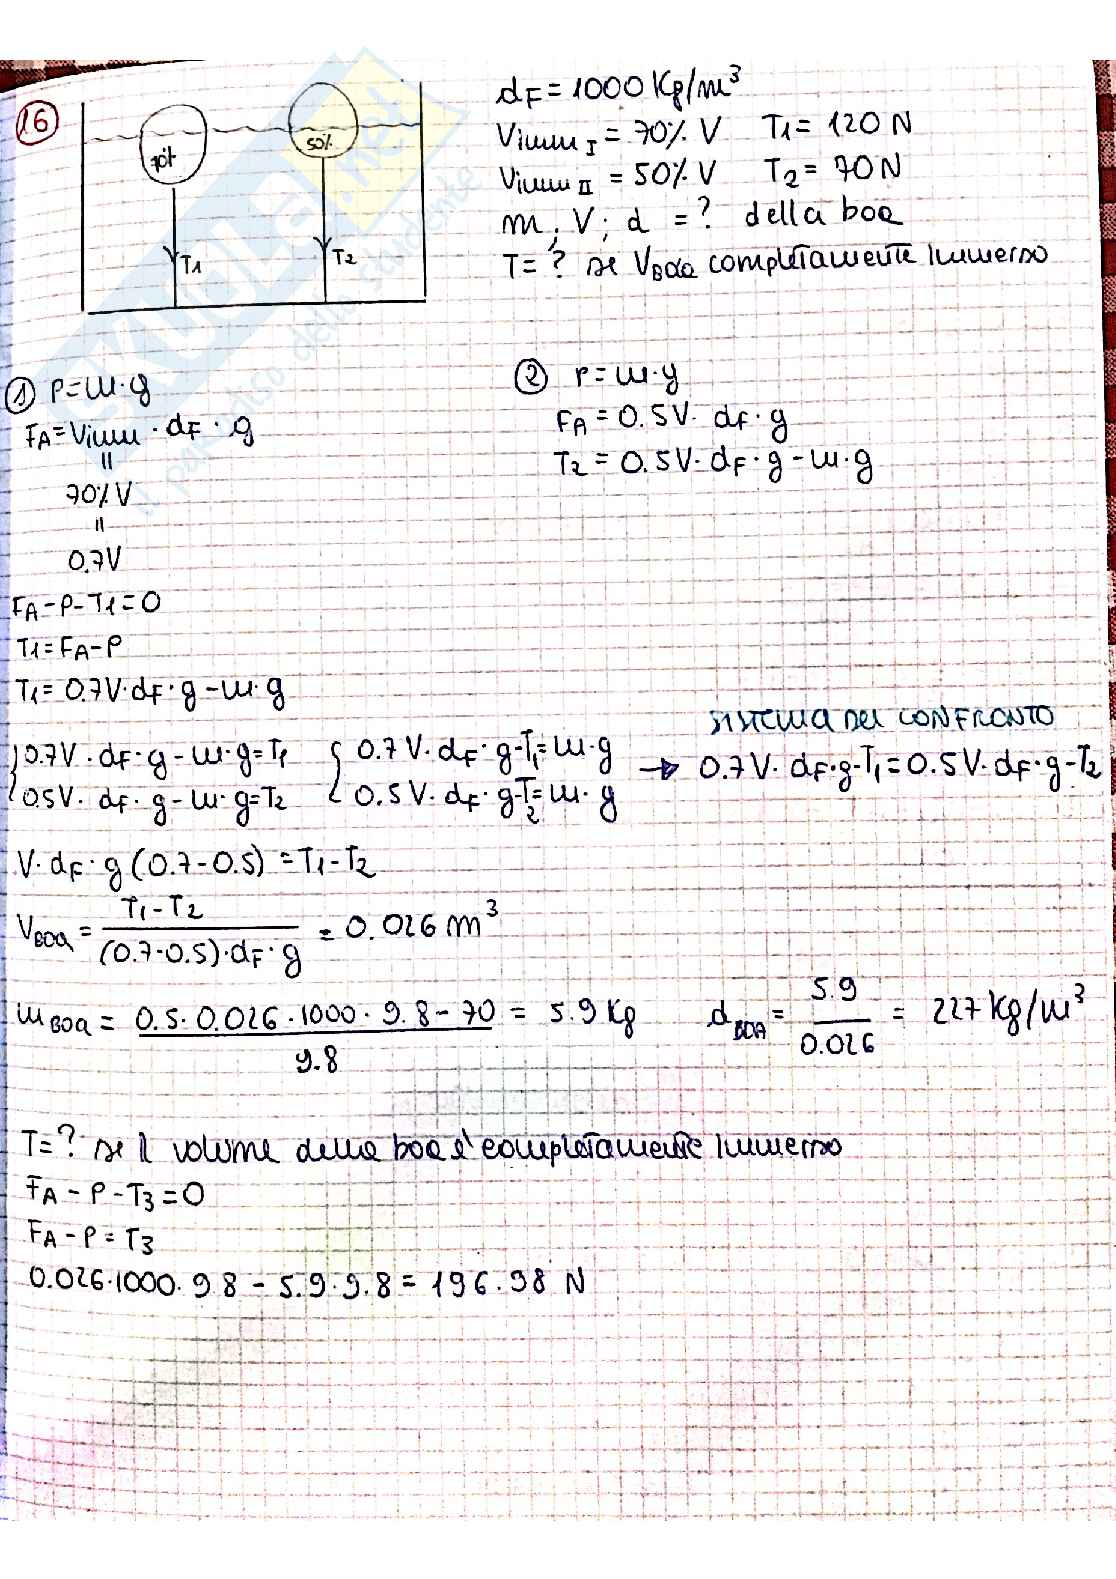 16
70%
50%
T1
T2
dF = 1000 Kg/m³
Vimm I = 70% V T1 = 120 N
Vimm II = 50% V T2 = 70 N
m; V; d = ? della boa
T = ? se VBOA completamente immerso
① P = m·g
FA = Vimm · dF · g
=
70% V
=
0.7V
FA - P - T1 = 0
T1 = FA - P
T1 = 0.7V·dF·g - m·g
② P = m·g
FA = 0.5V · dF·g
T2 = 0.5V·dF·g - m·g
SISTEMA DEL CONFRONTO
{0.7V · dF·g - m·g = T1 {0.7V·dF·g - T1 = m·g → 0.7V·dF·g - T1 = 0.5V·dF·g - T2
0.5V·dF·g - m·g = T2 0.5V·dF·g - T2 = m·g
V·dF·g (0.7 - 0.5) = T1 - T2
VBOA = T1 - T2 / (0.7-0.5)·dF·g = 0.026 m³
mBOA = 0.5·0.026·1000·9.8 - 70 / 9.8 = 5.9 Kg dBOA = 5.9 / 0.026 = 227 Kg/m³
T = ? se il volume della boa è completamente immerso
FA - P - T3 = 0
FA - P = T3
0.026·1000·9.8 - 5.9·9.8 = 196.98 N
SKUOLA.net
il paradiso dello studente